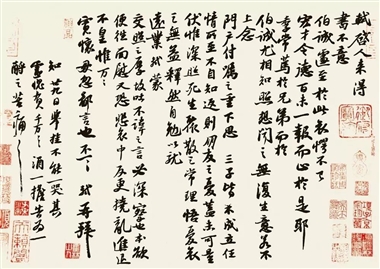 軾啟人來得
書不意
伯誠遽至於此哀愕不已
宏才令德百未一報而止於是耶
季常篤於兄弟而於
伯誠尤相知照想聞之無復生意若不
上念
門戶付囑之重下思三子皆不成立任
情所至不自知返則朋友之憂蓋未可量
伏惟深照死生聚散之常理悟憂哀
之無益釋然自勉以就
遠業軾蒙
交照之厚故吐不諱之言必深察也本欲
便往面慰又恐悲哀中反更撓亂進退
不皇惟萬萬
寬懷毋忽鄙言也不一一軾再拜
知廿九日舉掛不能一哭其
靈愧負千萬千萬酒一擔告為一
酹之苦痛苦痛